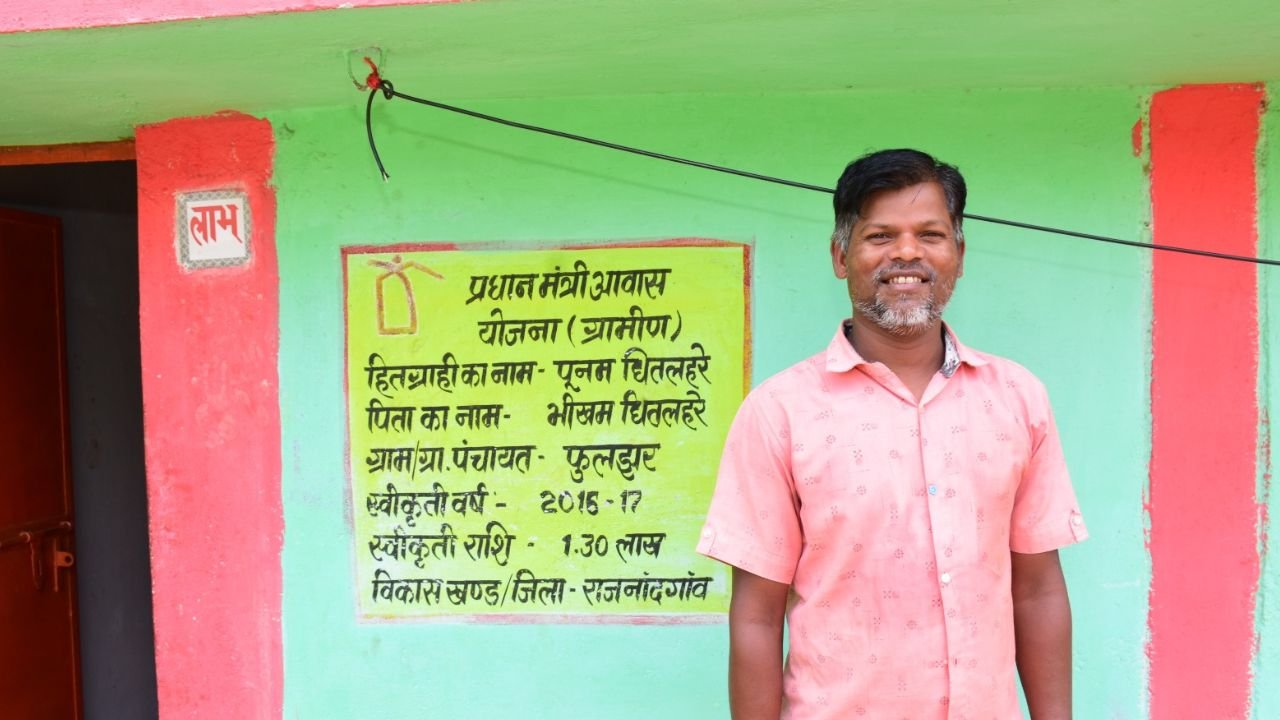 लाभ
प्रधान मंत्री आवास
योजना (ग्रामीण)
हितग्राही का नाम - पूनम धितलहरे
पिता का नाम - भीखम धितलहरे
ग्राम/ग्रा. पंचायत - फुलझर
स्वीकृती वर्ष :- 2016-17
स्वीकृती राशि - 1.30 लाख
विकास खण्ड/जिला - राजनांदगांव